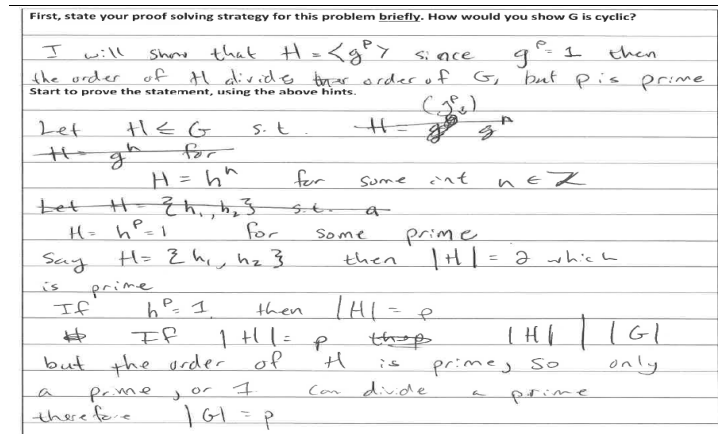 First, state your proof solving strategy for this problem briefly. How would you show G is cyclic?
I will show that H = <g^p> since g^p = 1 then
the order of H divides order of G, but p is prime
Start to prove the statement, using the above hints.
Let H ≤ G s.t. H = g^n
H = g^n for
H = h^n for some int n ∈ Z
Let H = {h₁, h₂} s.t. a
H = h^p = 1 for some prime
Say H = {h₁, h₂} then |H| = 2 which
is prime
If h^p = 1, then |H| = p
If |H| = p |H| | |G|
but the order of H is prime, so only
a prime, or 1 can divide a prime
therefore |G| = p